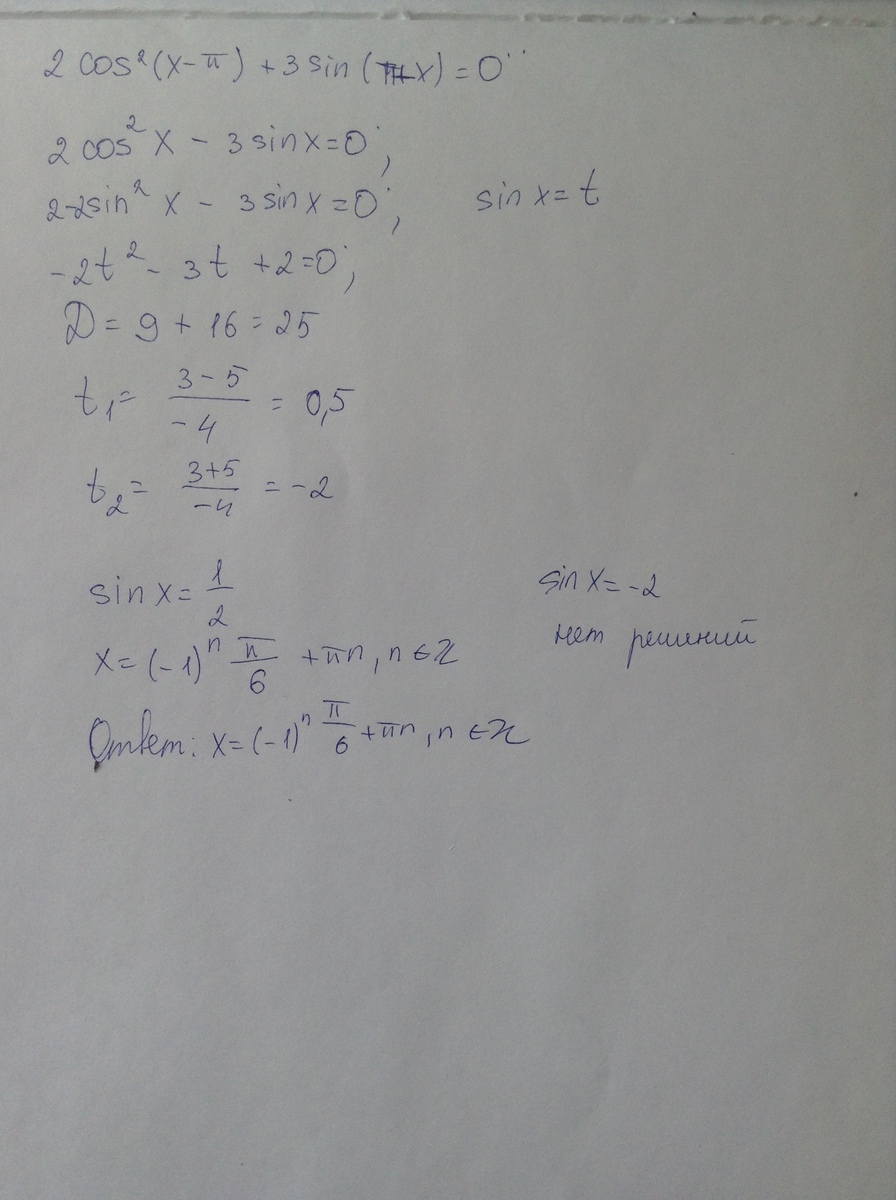 2 cos²(x-π) + 3 sin (π+x) = 0
2 cos² x - 3 sin x = 0;
2-2sin² x - 3 sin x = 0; sin x = t
-2t² - 3t + 2 = 0;
D = 9 + 16 = 25
t₁ = (3-5)/(-4) = 0,5
t₂ = (3+5)/(-4) = -2
sin x = 1/2 sin x = -2
x = (-1)ⁿ π/6 + πn, n ∈ Z нет решений
Ответ: x = (-1)ⁿ π/6 + πn, n ∈ Z